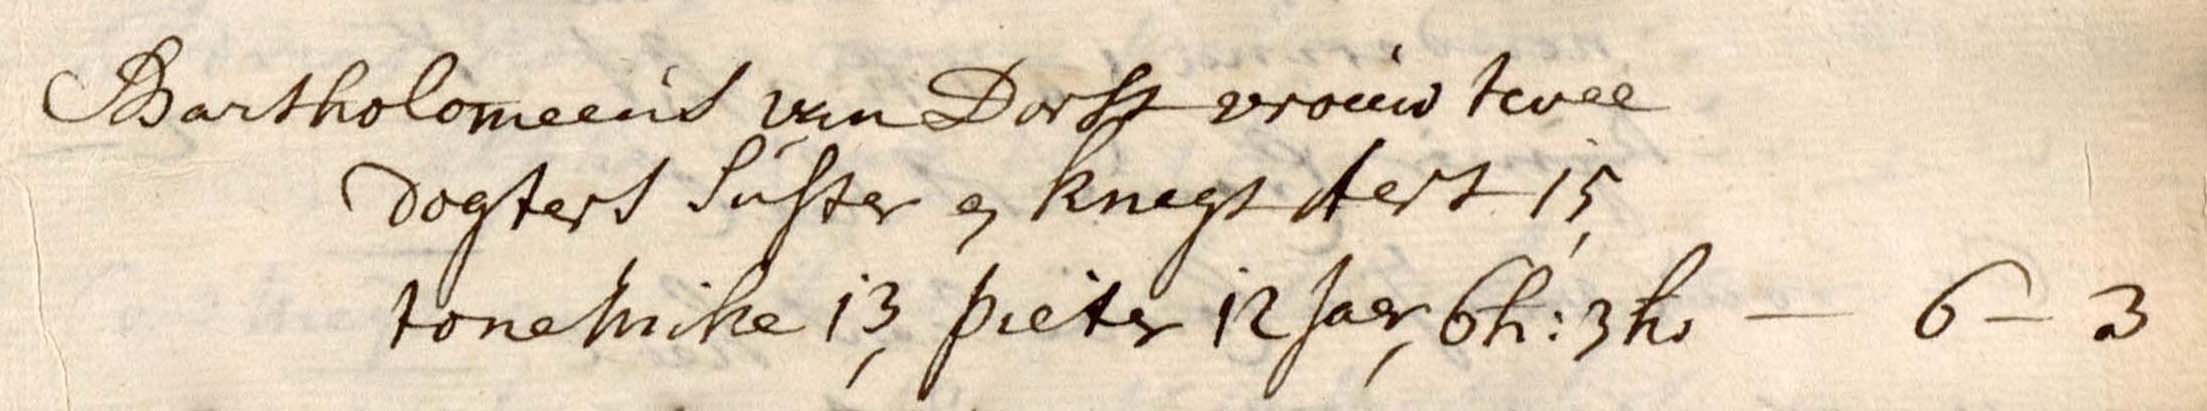 Bartholomeeus van Dorst vrouw twee
dogters suster en knegt Aert 15,
tonemike 13, pieter 12 Jaer, 6h: 3h. — 6 — 3